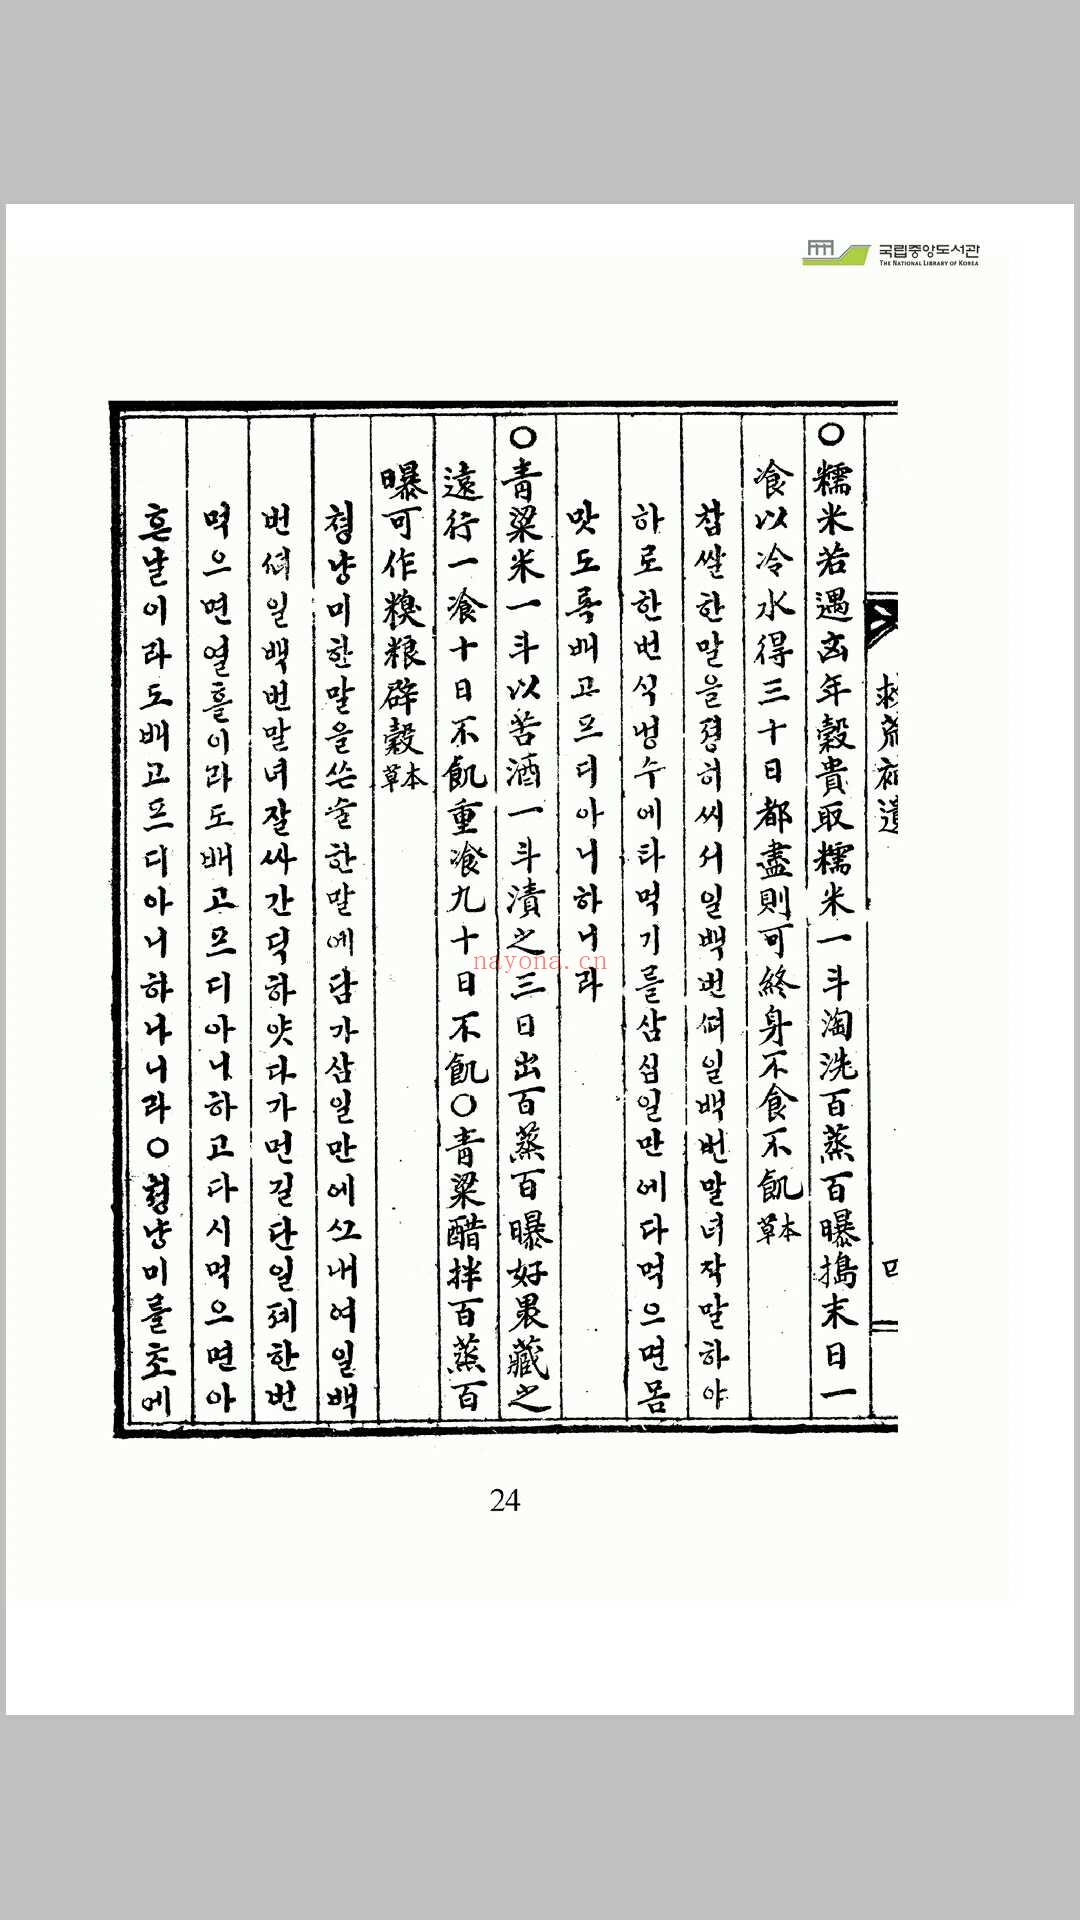 국립중앙도서관
THE NATIONAL LIBRARY OF KOREA
救荒補遺
四
○糯米若遇凶年穀貴取糯米一斗淘洗百蒸百曝搗末日一
飡以冷水得三十日都盡則可終身不食不飢本草
참쌀한말을졍히씨서일백번뼈일백번말녀작말하야
하로한번식넝수에타먹기를삼십일만에다먹으면몸
맛도록배고프디아니하니라
○靑粱米一斗以苦酒一斗漬之三日出百蒸百曝好裹藏之
遠行一飡十日不飢重飡九十日不飢○靑粱醋拌百蒸百
曝可作糗粮辟穀本草
쳥냥미한말을쓴술한말에담가삼일만에ᄭᅳ내여일백
번뼈일백번말녀잘싸간딕하얏다가먼길단일졔한번
먹으면열흘이라도배고프디아니하고다시먹으면아
흔날이라도배고프디아니하나니라○쳥냥미를초에
24
nayona.cn